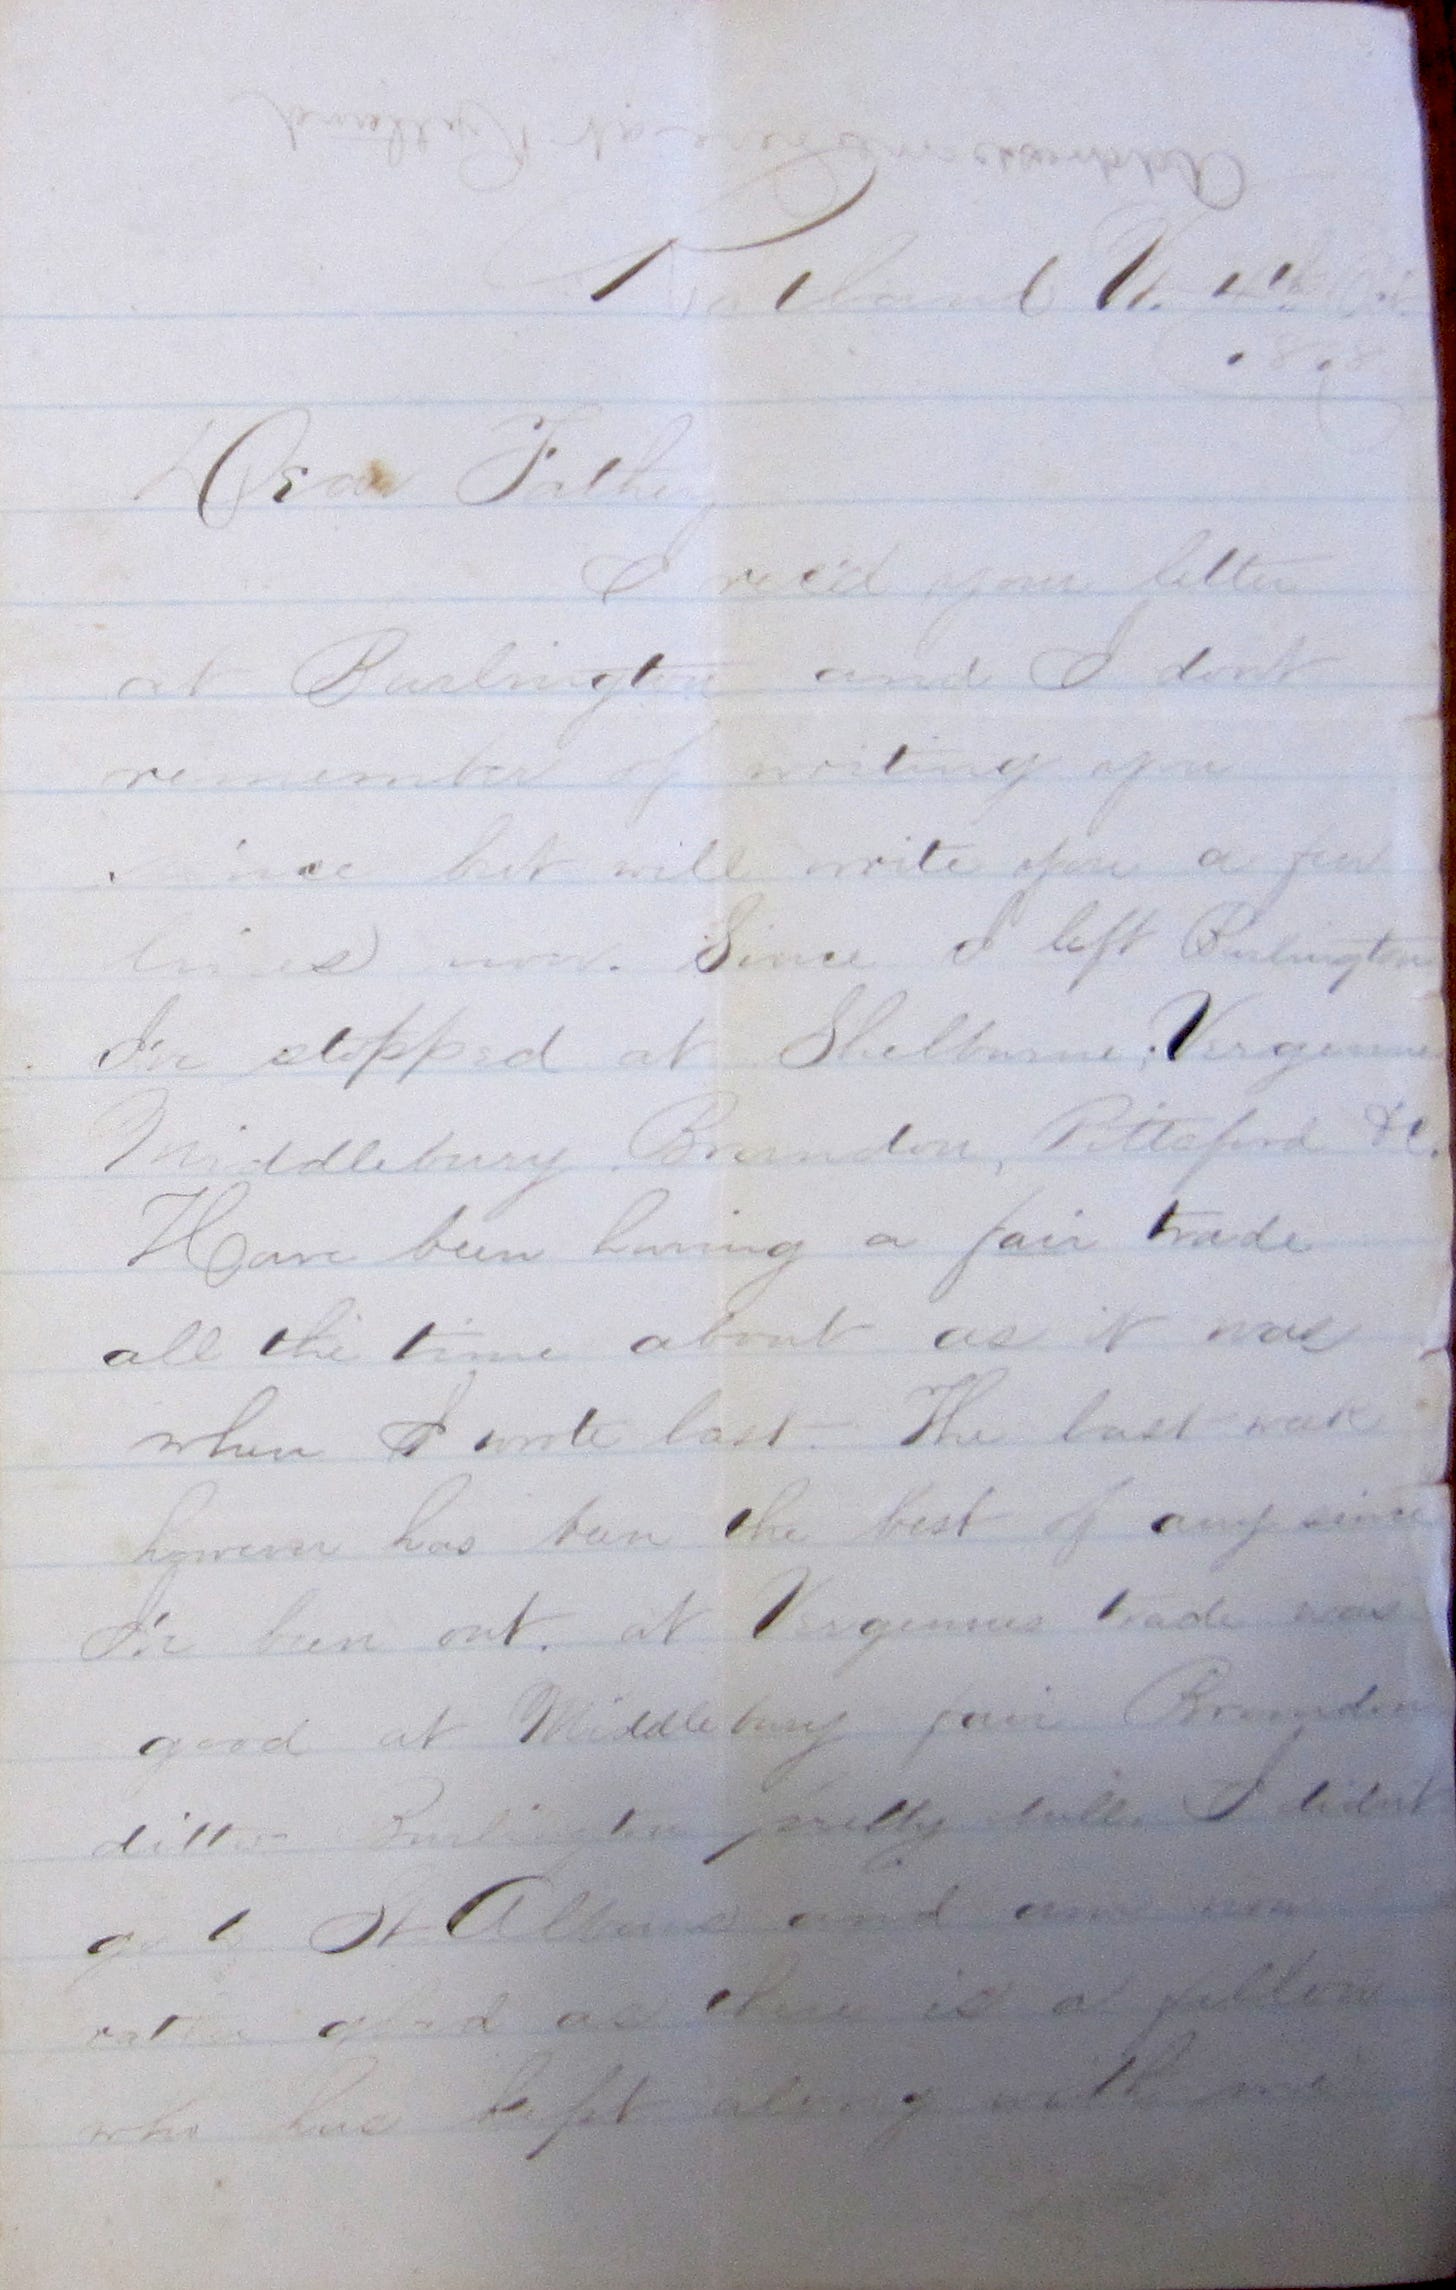 Address me at Rutland
Rutland Vt. 4th Oct.
Dear Father
I rec'd your letter
at Burlington and I dont
remember of writing you
since but will write you a few
lines now. Since I left Burlington
I've stopped at Shelburne, Vergennes
Middlebury Brandon, Pittsford &c.
Have been having a fair trade
all the time about as it was
when I wrote last. The last week
however has been the best of any since
I've been out. at Vergennes trade was
good at Middlebury fair Brandon
ditto Burlington pretty dull. I didn't
go to St Albans and am now
rather glad as there is a fellow
who has kept along with me